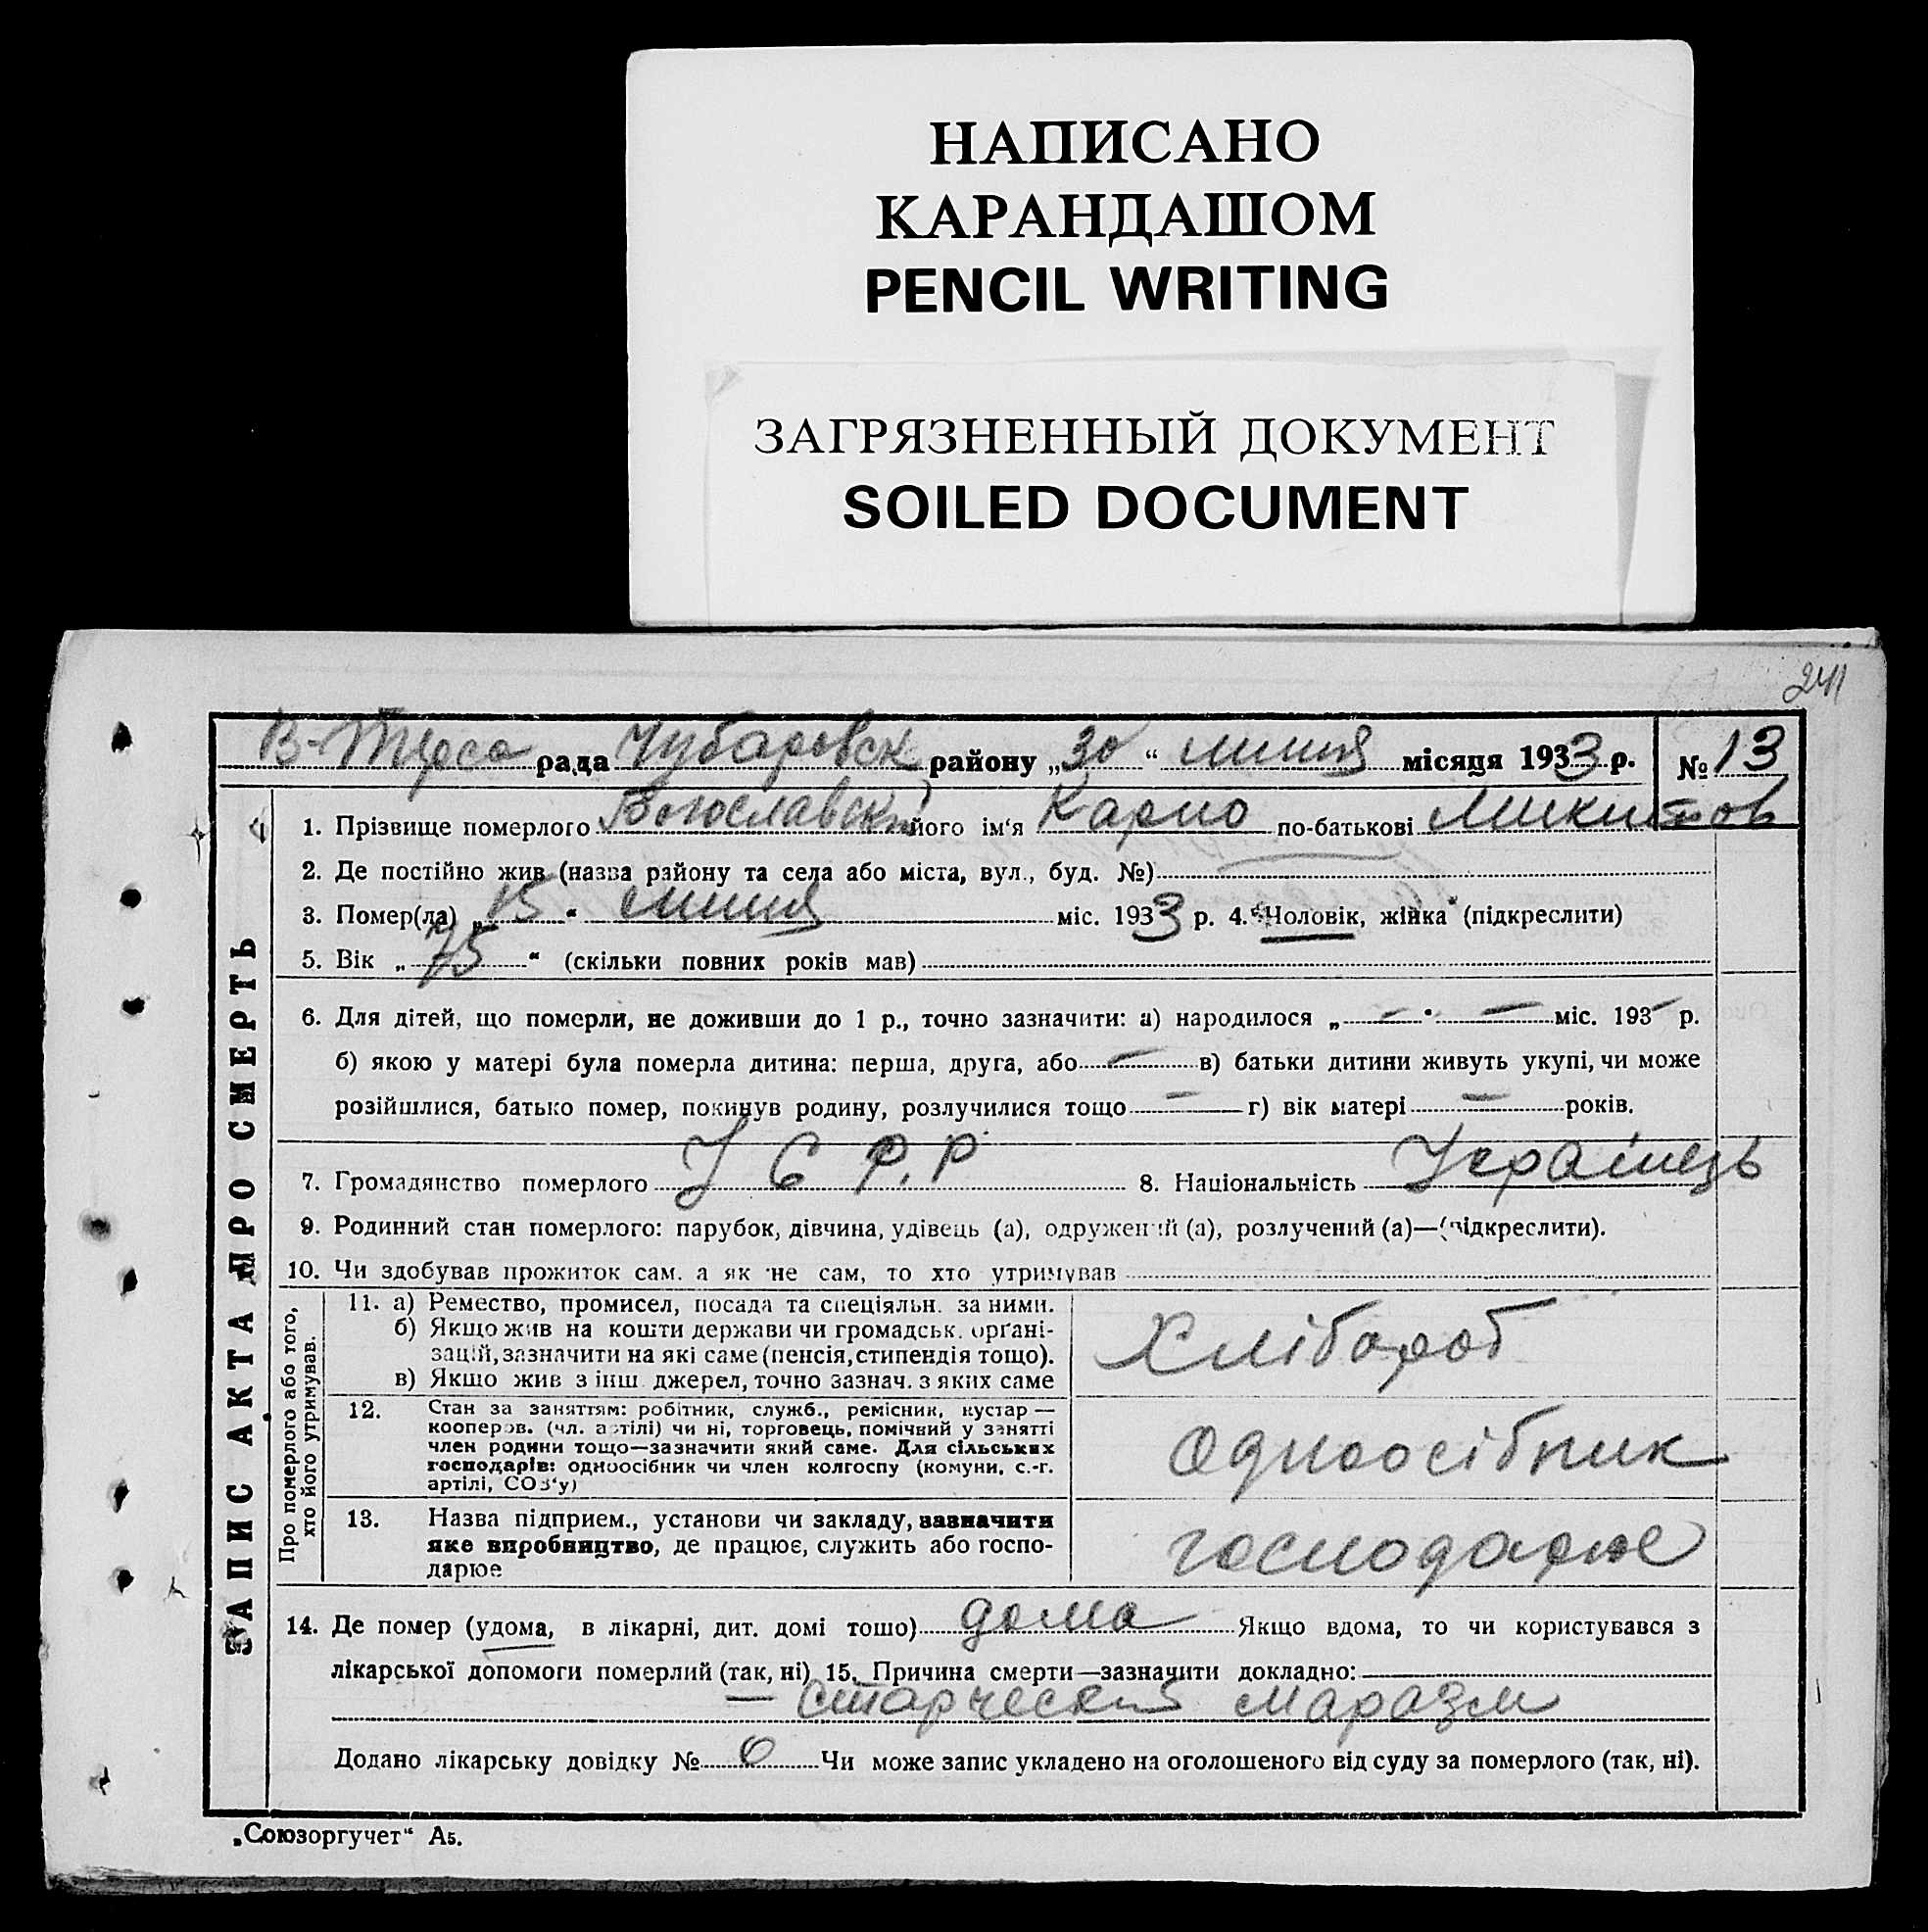 НАПИСАНО
КАРАНДАШОМ
PENCIL WRITING
ЗАГРЯЗНЕННЫЙ ДОКУМЕНТ
SOILED DOCUMENT
241
В-Терса рада Чубаровск району „30“ липня місяця 1933 р. № 13
ЗАПИС АКТА ПРО СМЕРТЬ
1. Прізвище померлого Богославский його ім‘я Карпо по-батькові Микитов
2. Де постійно жив (назва району та села або міста, вул., буд. №)
3. Помер(ла) „15“ липня міс. 1933 р. 4. Чоловік, жінка (підкреслити)
5. Вік „75“ (скільки повних років мав)
6. Для дітей, що померли, не доживши до 1 р., точно зазначити: а) народилося „—“ — міс. 193— р.
б) якою у матері була померла дитина: перша, друга, або — в) батьки дитини живуть укупі, чи може
розійшлися, батько помер, покинув родину, розлучилися тощо — г) вік матері — років.
7. Громадянство померлого УСРР 8. Національність Українець
9. Родинний стан померлого: парубок, дівчина, удівець (а), одружений (а), розлучений (а)—(підкреслити).
10. Чи здобував прожиток сам. а як не сам, то хто утримував
Про померлого або того,
хто його утримував.
11. а) Ремество, промисел, посада та спеціяльн. за ними.
б) Якщо жив на кошти держави чи громадськ. орґані-
зацій, зазначити на які саме (пенсія, стипендія тощо).
в) Якшо жив з інш. джерел, точно зазнач. з яких саме
Хлібороб
12. Стан за заняттям: робітник, служб., ремісник, кустар —
кооперов. (чл. артілі) чи ні, торговець, помічний у занятті
член родини тощо—зазначити який саме. Для сільських
господарів: одноосібник чи член колгоспу (комуни, с.-г.
артілі, СОЗ‘у)
Одноосібник
13. Назва підприєм., установи чи закладу, зазначити
яке виробництво, де працює, служить або госпо-
дарює
господарює
14. Де помер (удома, в лікарні, дит. домі тошо) дома Якщо вдома, то чи користувався з
лікарської допомоги померлий (так, ні) 15. Причина смерти—зазначити докладно:
— старческий маразм
Додано лікарську довідку № 0 Чи може запис укладено на оголошеного від суду за померлого (так, ні).
„Союзоргучет“ А5.